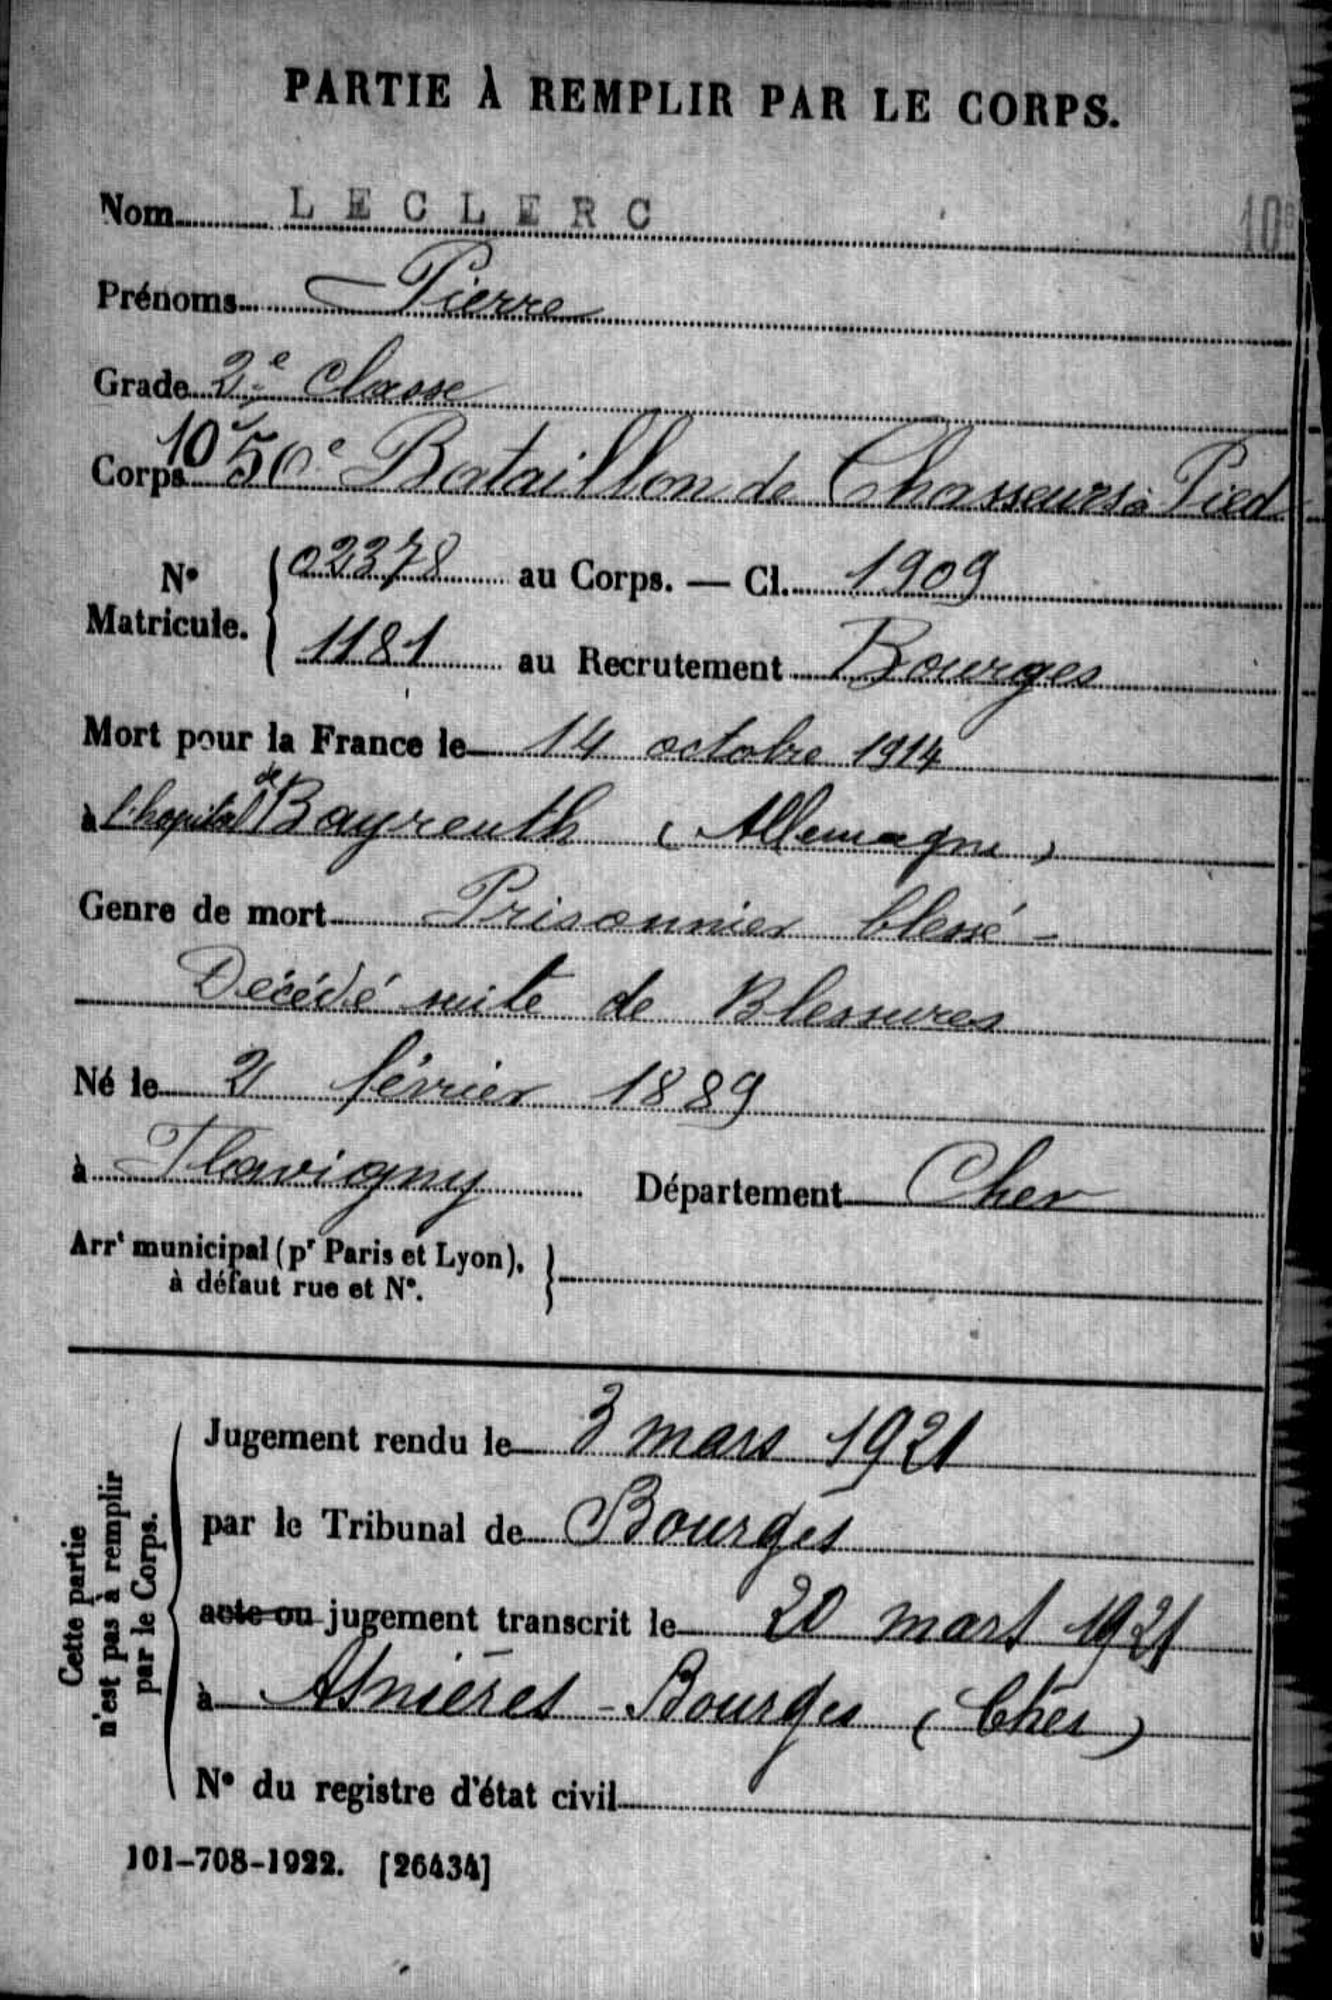 PARTIE À REMPLIR PAR LE CORPS.
Nom LECLERC
10e
Prénoms Pierre
Grade 2e Classe
Corps 10e 50e Bataillon de Chasseurs à Pied
No Matricule. 02378 au Corps. — Cl. 1909
1181 au Recrutement Bourges
Mort pour la France le 14 octobre 1914
à l'hopital de Bayreuth (Allemagne)
Genre de mort Prisonnier blessé -
Décédé suite de Blessures
Né le 21 février 1889
à Flavigny Département Cher
Arrt municipal (pr Paris et Lyon),
à défaut rue et No.
Cette partie
n'est pas à remplir
par le Corps.
Jugement rendu le 3 mars 1921
par le Tribunal de Bourges
acte ou jugement transcrit le 20 mars 1921
à Asnières - Bourges (Cher)
No du registre d'état civil
101-708-1922. [26434]